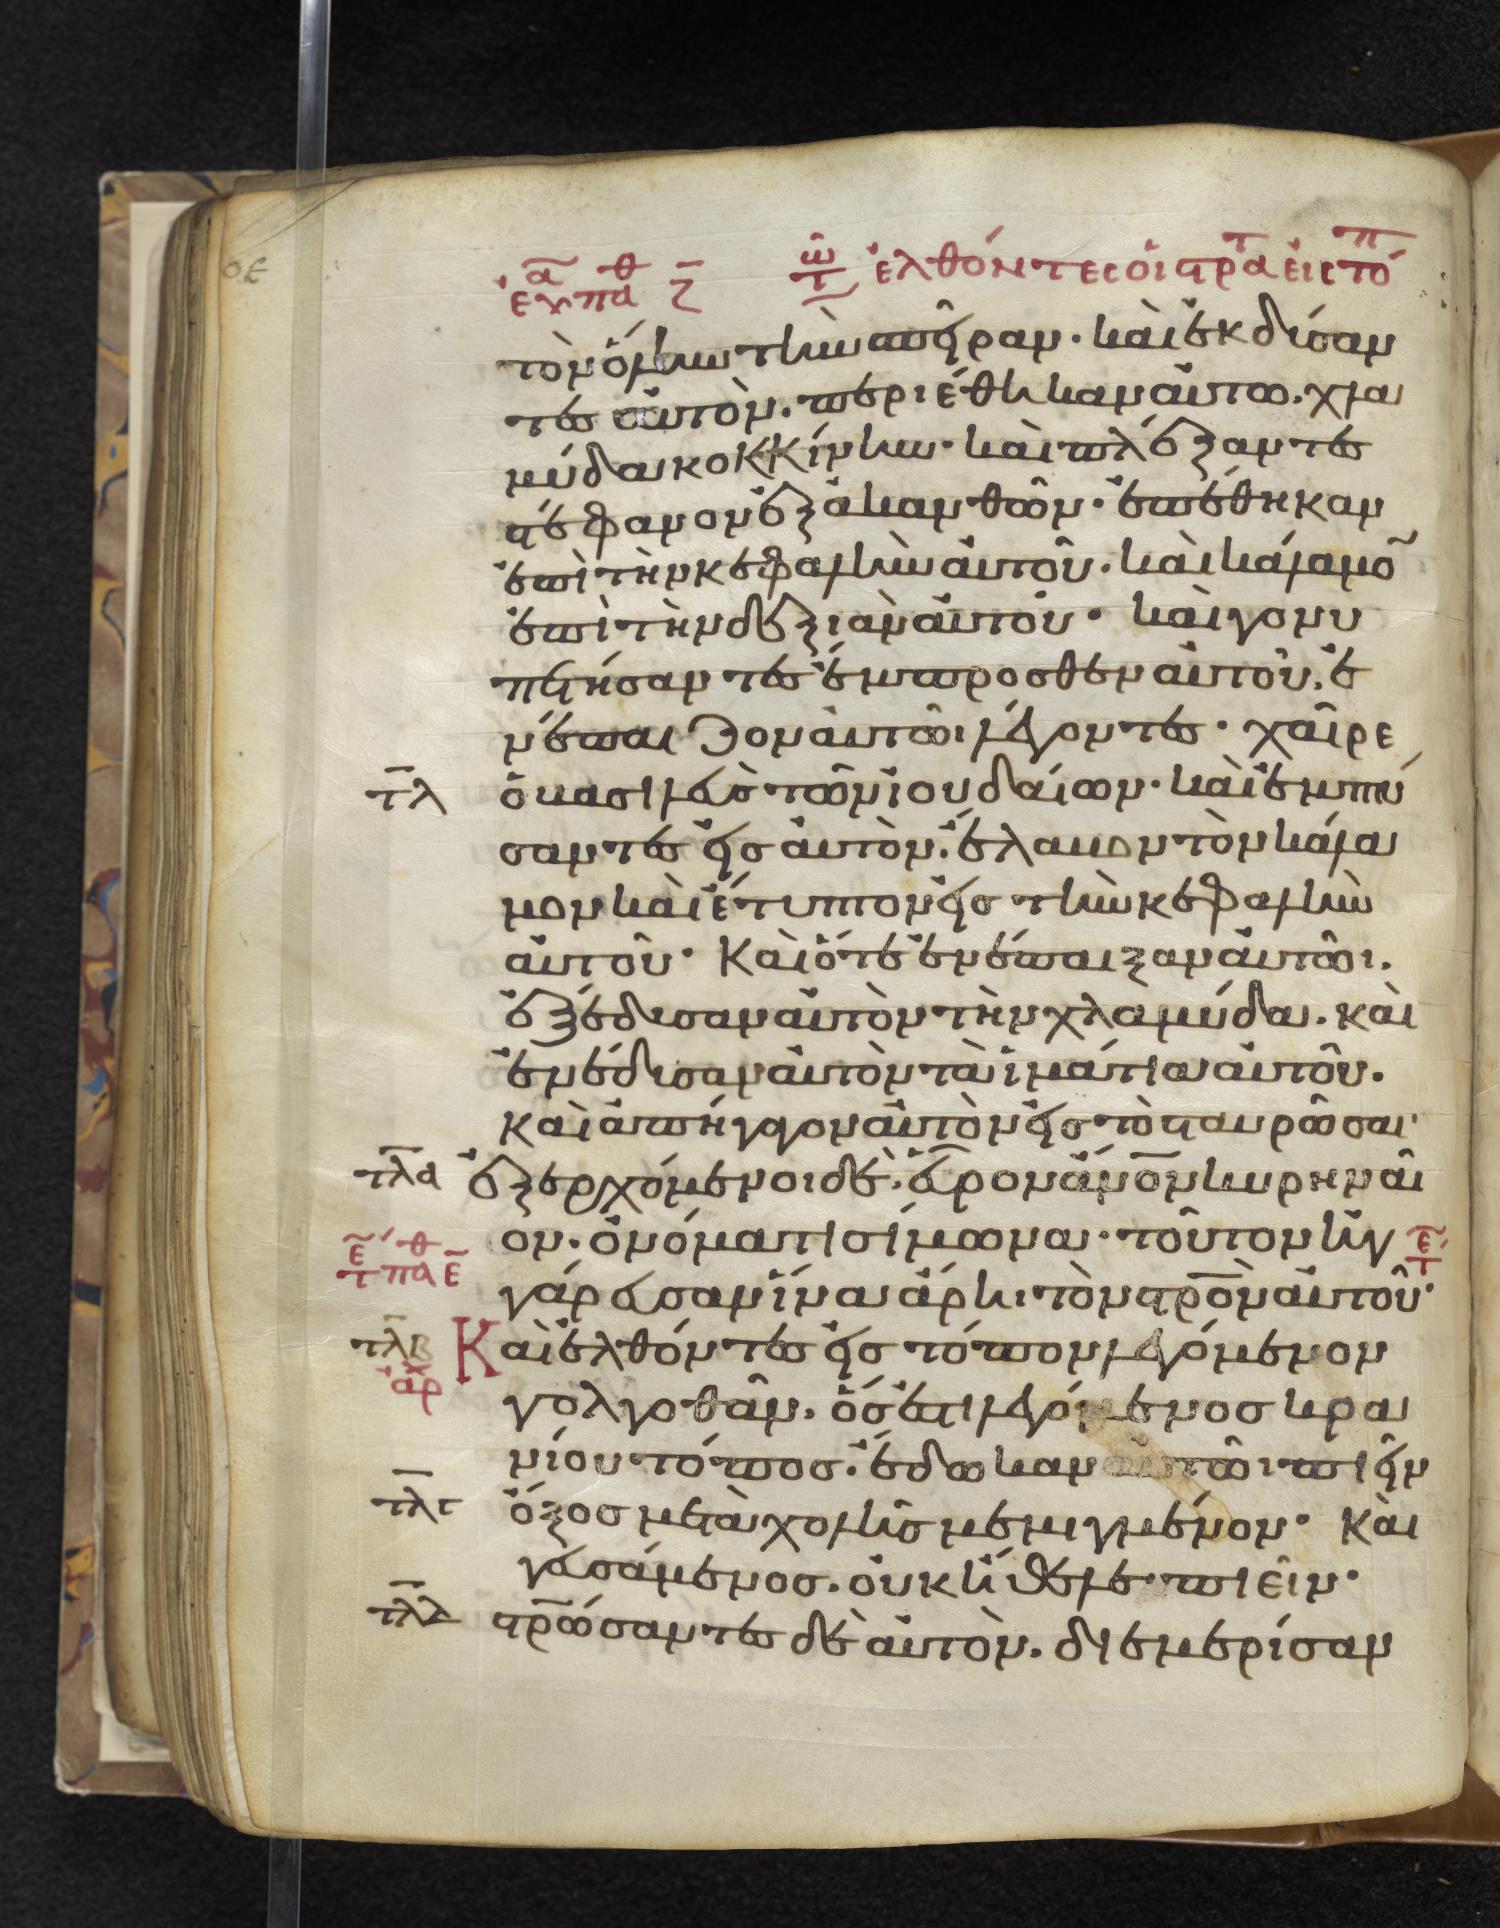 ἐλθόντες οἱ στρα εἰς τὸ
τὸν ὅλην τὴν σπεῖραν· καὶ ἐκδύσαν
τες αὐτὸν. περιέθηκαν αὐτω. χλα
μύδα κοκκίνην· καὶ πλέξαντες
στέφανον ἐξ ἀκανθῶν· ἐπέθηκαν
ἐπὶ τὴν κεφαλὴν αὐτοῦ. καὶ κάλαμο
ἐπὶ τὴν δεξιὰν αὐτοῦ· καὶ γονυ
πετήσαντες ἔμπροσθεν αὐτοῦ. ἐ
νέπαιζον αὐτῶι λέγοντες· χαῖρε
τλ ὁ βασιλεὺς τῶν ἰουδαίων· καὶ ἐμπτύ
σαντες εἰς αὐτὸν. ἔλαβον τὸν κάλα
μον καὶ ἔτυπτον εἰς τὴν κεφαλὴν
αὐτοῦ· Καὶ ὅτε ἐνέπαιξαν αὐτῶι.
ἐξέδυσαν αὐτὸν τὴν χλαμύδα. καὶ
ἐνέδυσαν αὐτὸν τὰ ἱμάτια αὐτοῦ.
καὶ ἀπήγαγον αὐτὸν εἰς τὸ σταυρῶσαι·
τλα ἐξερχόμενοι δὲ. εὗρον ἄνον κυρηναῖ
ον. ὀνόματι σίμωνα· τοῦτον ἠγ
γάρευσαν ἵνα ἄρηι τὸν στρον αὐτοῦ·
τλβ Καὶ ἐλθόντες εἰς τόπον λεγόμενον
αρ
γολγοθᾶν. ὅς ἐστι λεγόμενος κρα
νίου τόπος. ἔδωκαν αὐτῶι πιεῖν
τλγ ὄξος μετὰ χολῆς μεμιγμένον· Καὶ
γευσάμενος. οὐκ ἤθελε πιεῖν·
τλδ στρώσαντες δὲ αὐτὸν. διεμερίσαν